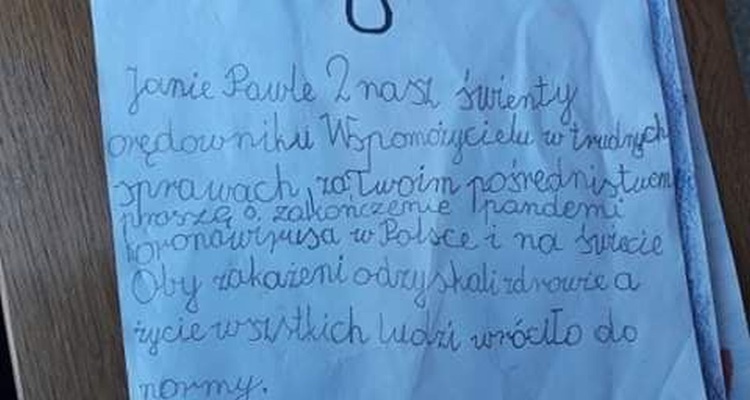 Janie Pawle 2 nasz świenty
orędowniku Wspomożycielu w trudnych
sprawach, za Twoim pośrednistwem
proszę o zakończenie pandemi
koronawirusa w Polsce i na świecie
Oby zakażeni odzyskali zdrowie a
życie wszstkich ludzi wróciło do
normy.